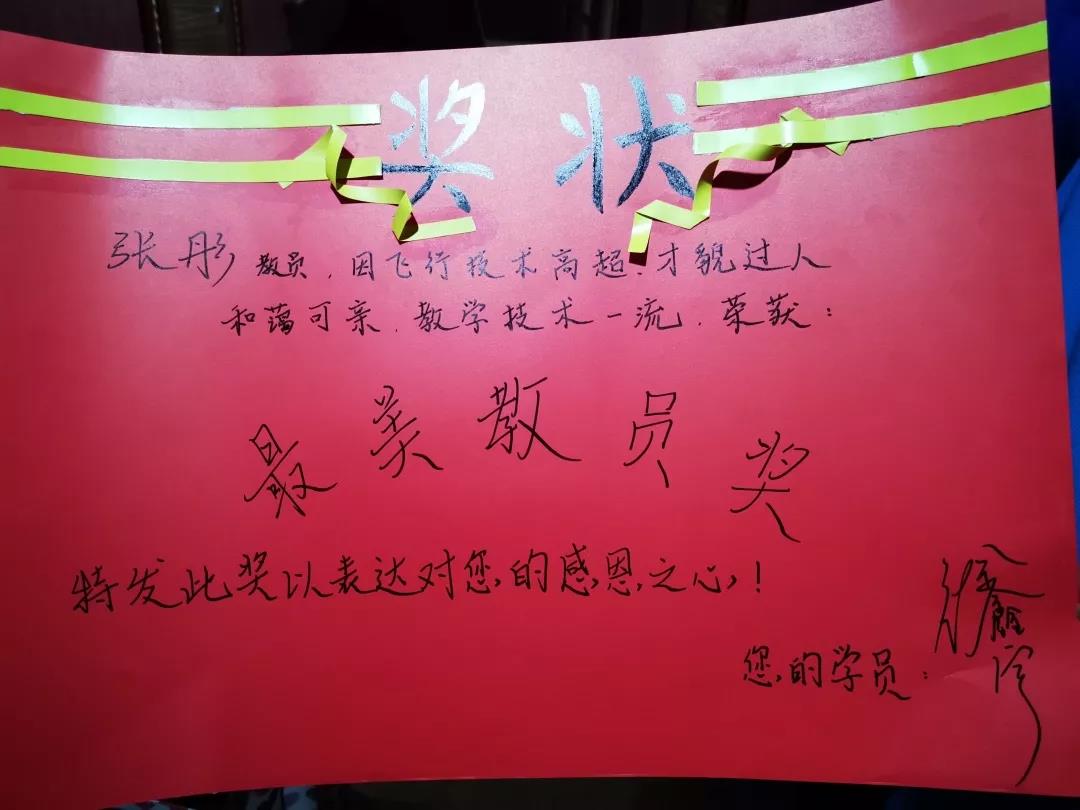 奖状
张彤教员，因飞行技术高超、才貌过人
和蔼可亲、教学技术一流，荣获：
最美教员奖
特发此奖以表达对您的感恩之心！
您的学员：